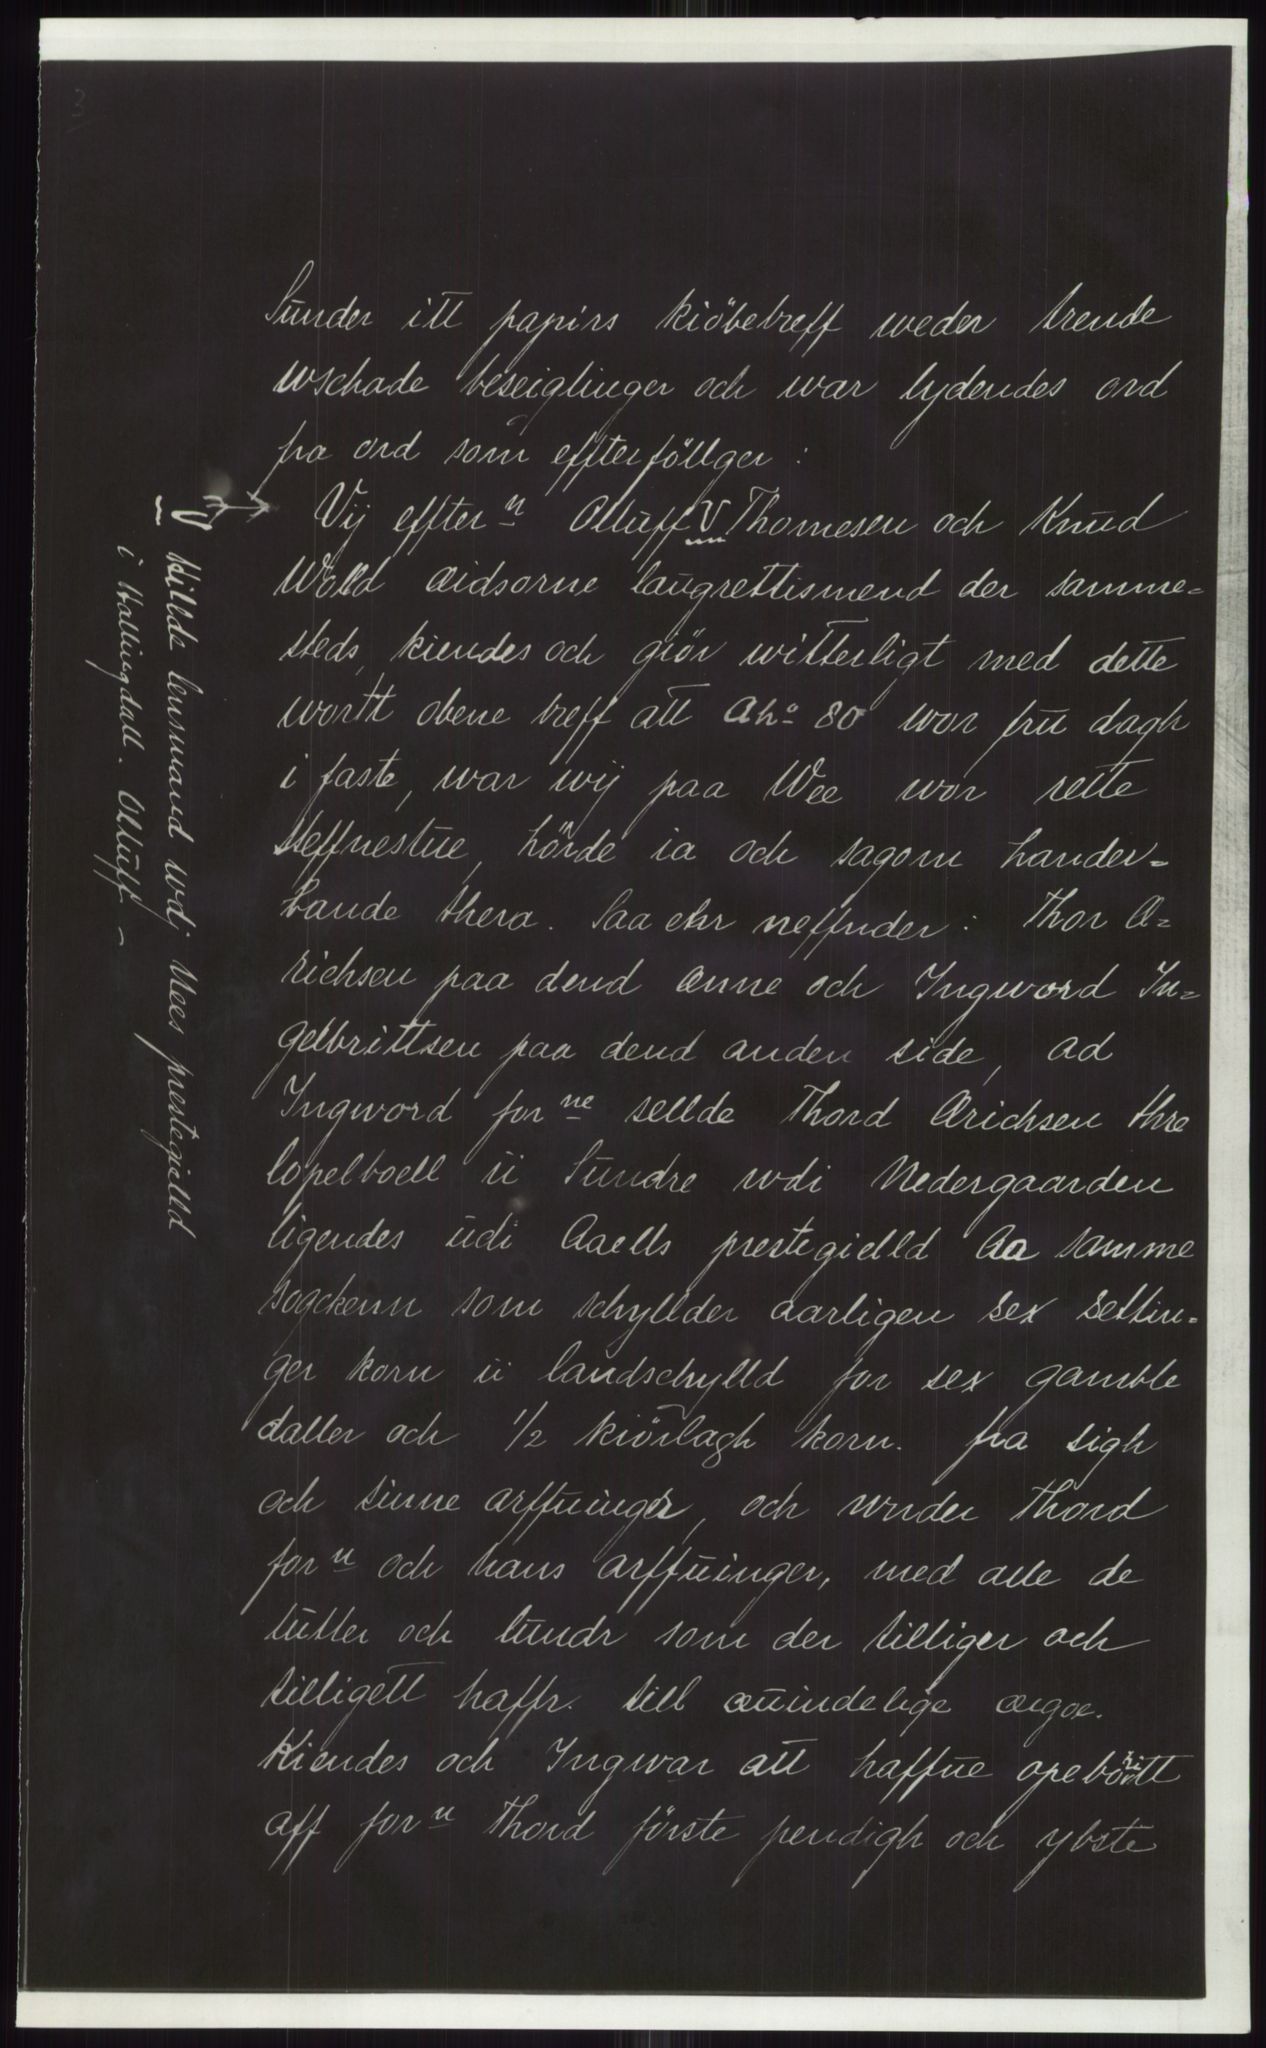 3
Sunder itt papirs kiöbebreff weder trende
wschade beseiglinger och war lydendes ord
fra ord som effterföllger:
Vij effter n Olluff V Thomesen och Knud
Wold æidsorne laugrettismend der samme=
steds, kiendes och giör witterligt med dette
wortt obene breff att Ah° 80 wor fru dagh
i faste, war wij paa Wee wor rette
steffnestue, hörde ia och sagom hander=
bande thera. Saa ehr neffnder: Thor Æ=
richsen paa dend ænne och Ingword In=
gelbrittsen paa dend anden side, ad
Ingword for ne sellde Thord Ærichsen thre
lopelboell ii Sundre wdi Nedergaarden
ligendes udi Aaells prestegielld Aa samme
sogckenn som schyllder aarligen sex settin=
ger korn ii landschylld for sex gamble
daller och 1/2 kiörlagh korn. fra sigh
och sinne arffuinger, och wnder Thord
for n och hans arffuinger, med alle de
lutter och lundr som der tilliger och
tilligett haffr. till æuindelige æigæ.
Kiendes och Ingwar att haffue opebört
ri
aff for n Thord förste pendigh och ybste
V Hilde lensmand wdj Nees prestegielld
i Hallingdall. Olluff –